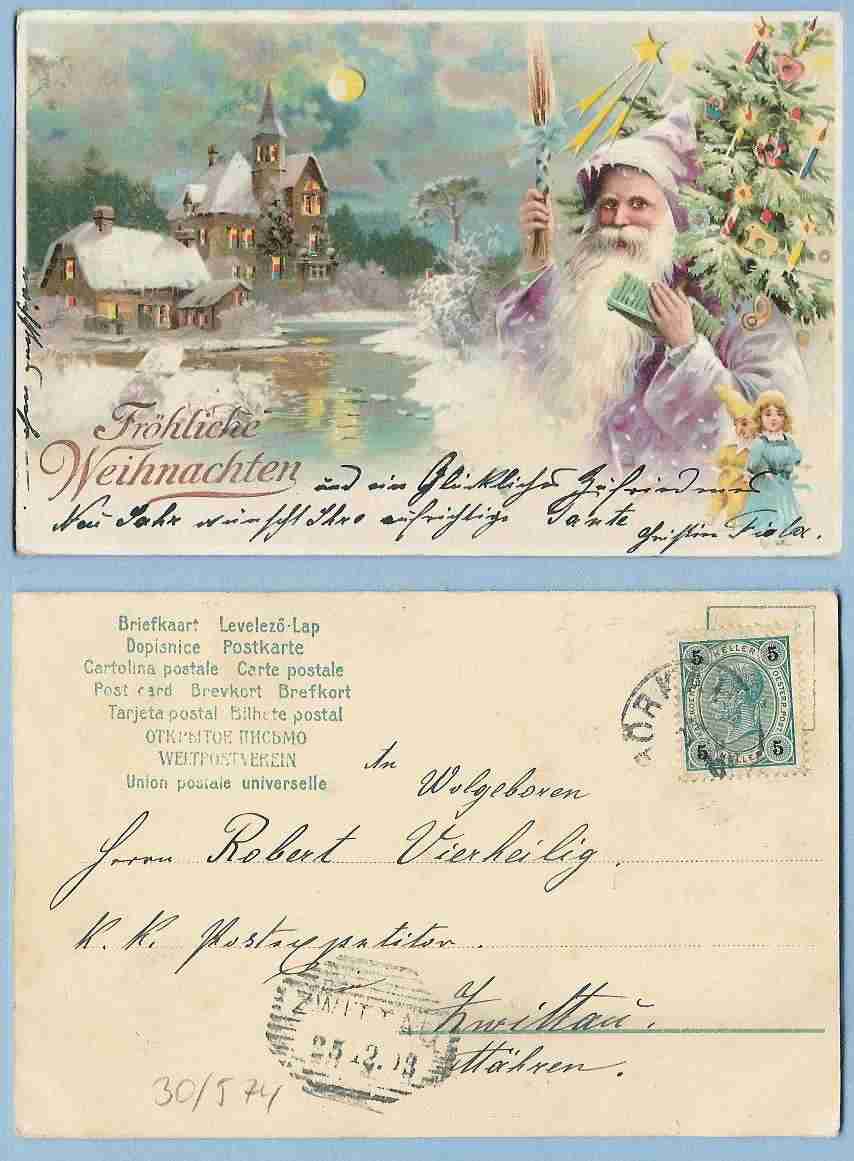 Fröhliche
Weihnachten und ein Glückliches Zufriedenes
Neu Jahr wünscht Ihre aufrichtige Tante
Christine Fiala.
Briefkaart Levelező-Lap
Dopisnice Postkarte
Cartolina postale Carte postale
Post card Brevkort Brefkort
Tarjeta postal Bilhete postal
ОТКРЫТОЕ ПИСЬМО
WELTPOSTVEREIN
Union postale universelle
5 KELLER 5
5 HELLER 5
An
Wolgeboren
Herrn Robert Vierheilig.
K. K. Postexpetitor.
in
Zwittau.
Mähren.
ZWITTAU
25.12.03
30/5 74